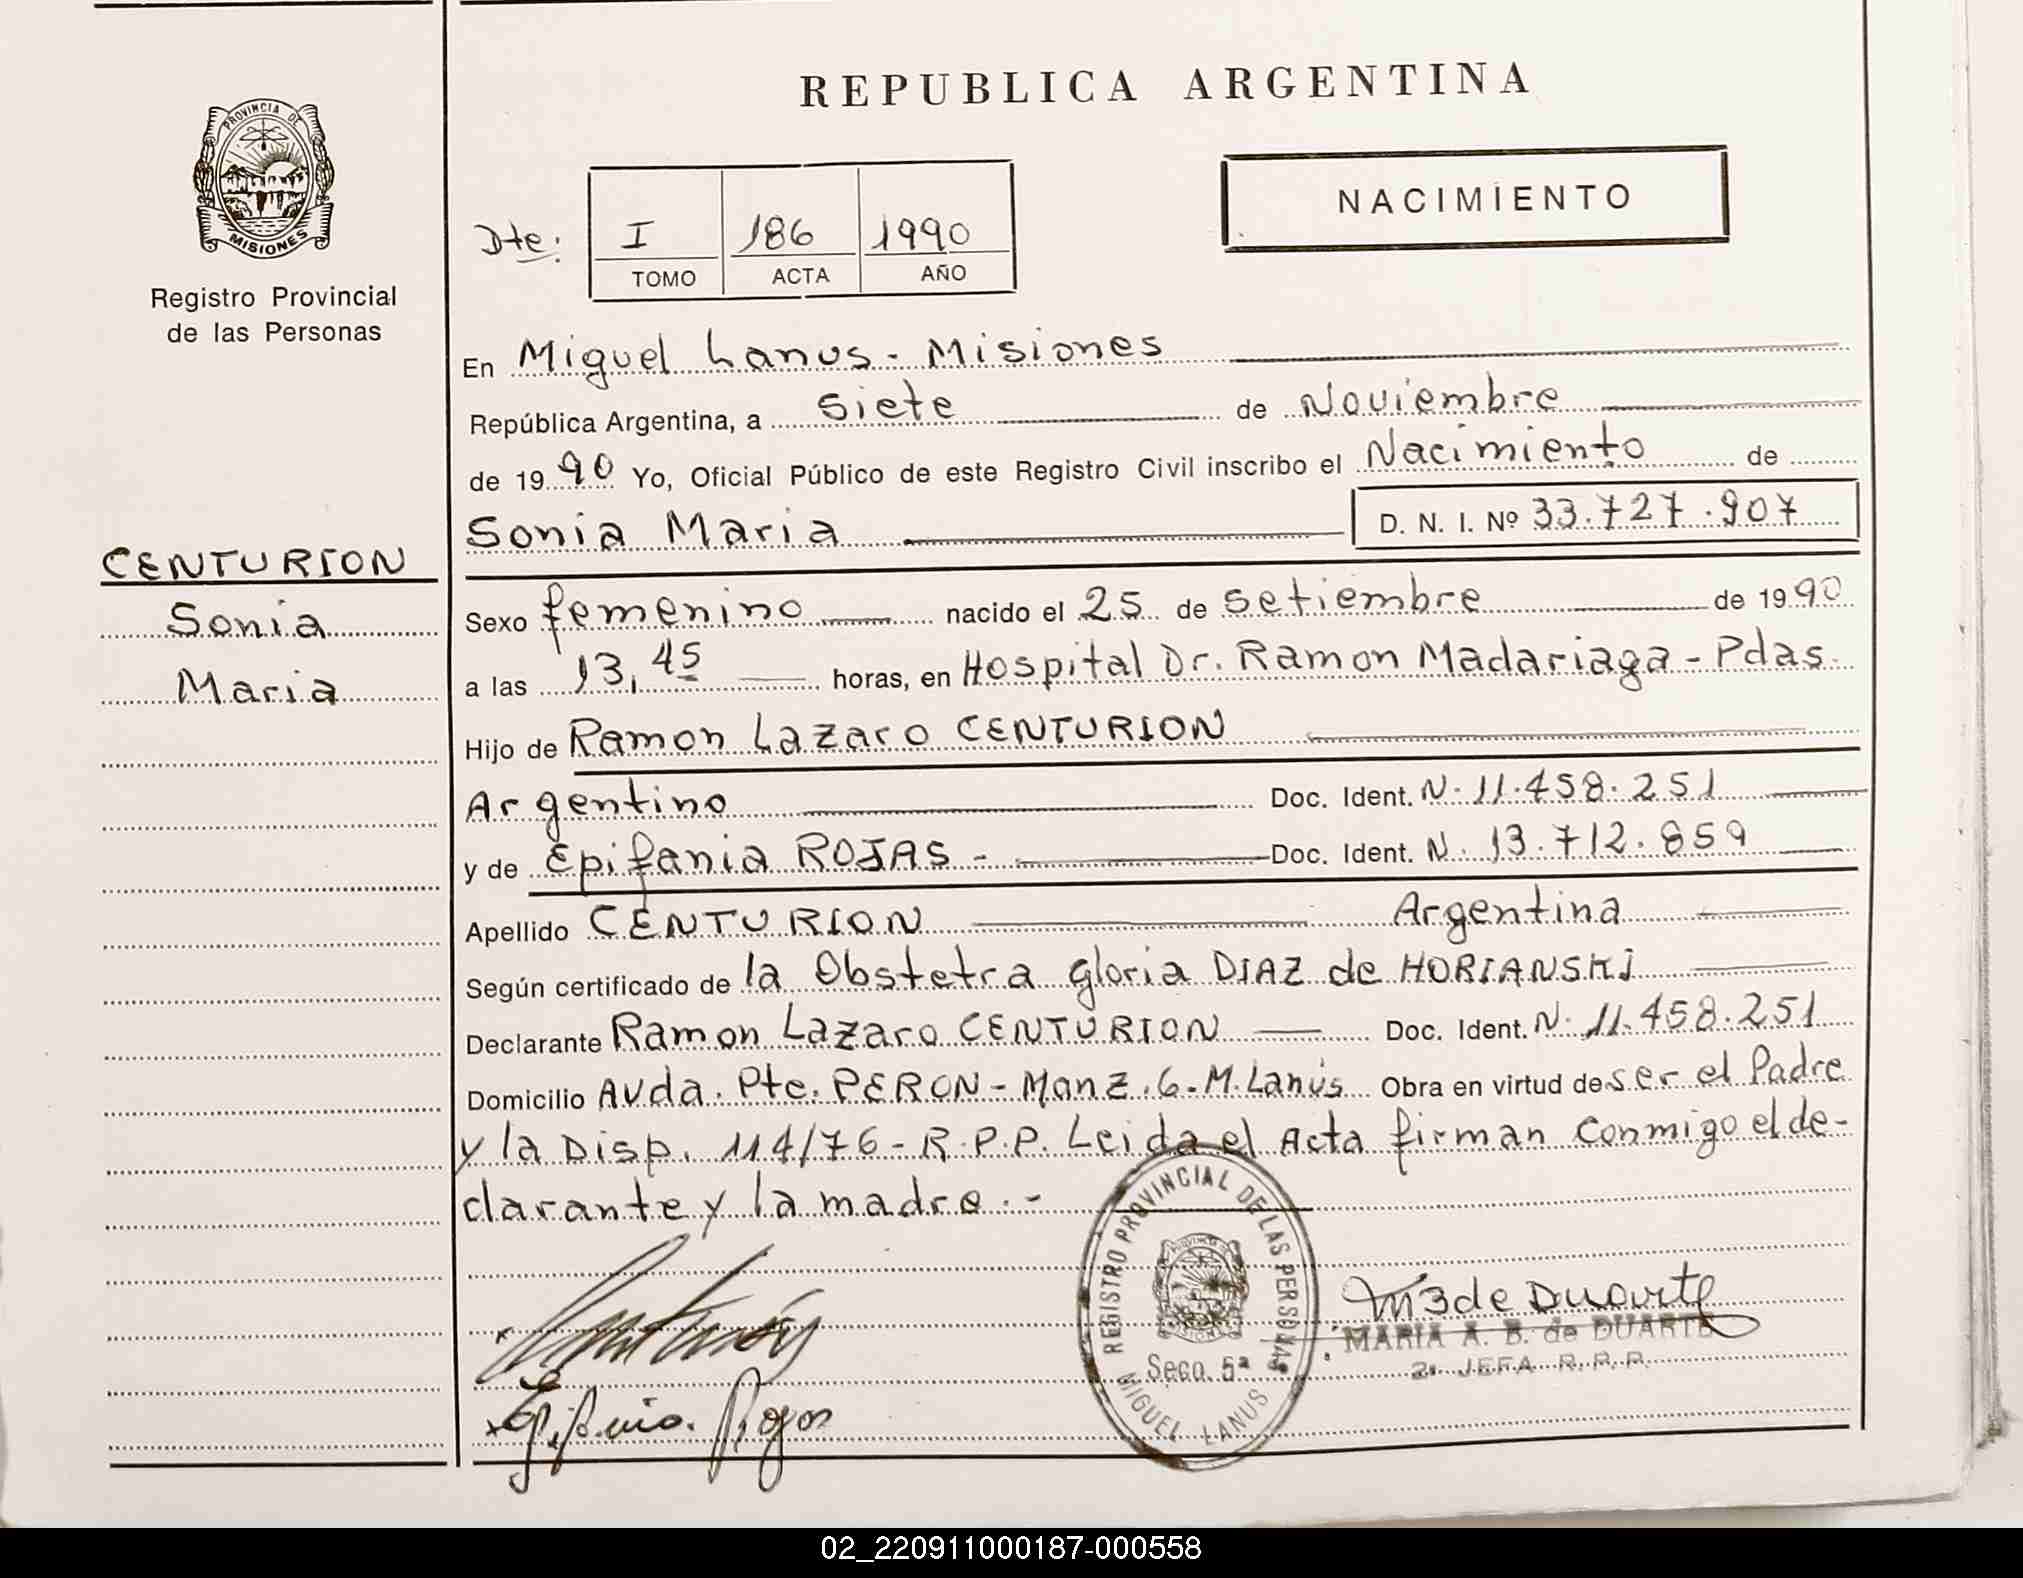 REPUBLICA ARGENTINA
PROVINCIA DE
MISIONES
Registro Provincial
de las Personas
NACIMIENTO
Dte: I 186 1990
TOMO ACTA AÑO
En Miguel Lanus - Misiones
República Argentina, a siete de Noviembre
de 1990 Yo, Oficial Público de este Registro Civil inscribo el Nacimiento de
Sonia Maria D. N. I. Nº 33.727.907
CENTURION
Sonia
Maria
Sexo femenino nacido el 25 de setiembre de 1990
a las 13,45 horas, en Hospital Dr. Ramon Madariaga - Pdas.
Hijo de Ramon Lazaro CENTURION
Argentino Doc. Ident. N. 11.458.251
y de Epifania ROJAS - Doc. Ident. N. 13.712.859
Apellido CENTURION Argentina
Según certificado de la Obstetra Gloria DIAZ de HORIANSKI
Declarante Ramon Lazaro CENTURION Doc. Ident. N. 11.458.251
Domicilio Avda. Pte. PERON - Manz. 6 - M. Lanús Obra en virtud de ser el Padre
y la Disp. 114/76 - R.P.P. Leida el Acta firman conmigo el de-
clarante y la madre. -
REGISTRO PROVINCIAL DE LAS PERSONAS
PROVINCIA DE
MISIONES
Secc. 5ª
MIGUEL LANUS
de Duarte
MARIA A. B. de DUARTE
2ª JEFA R. P. P.
Centurión
Epifania Rojas
02_220911000187-000558